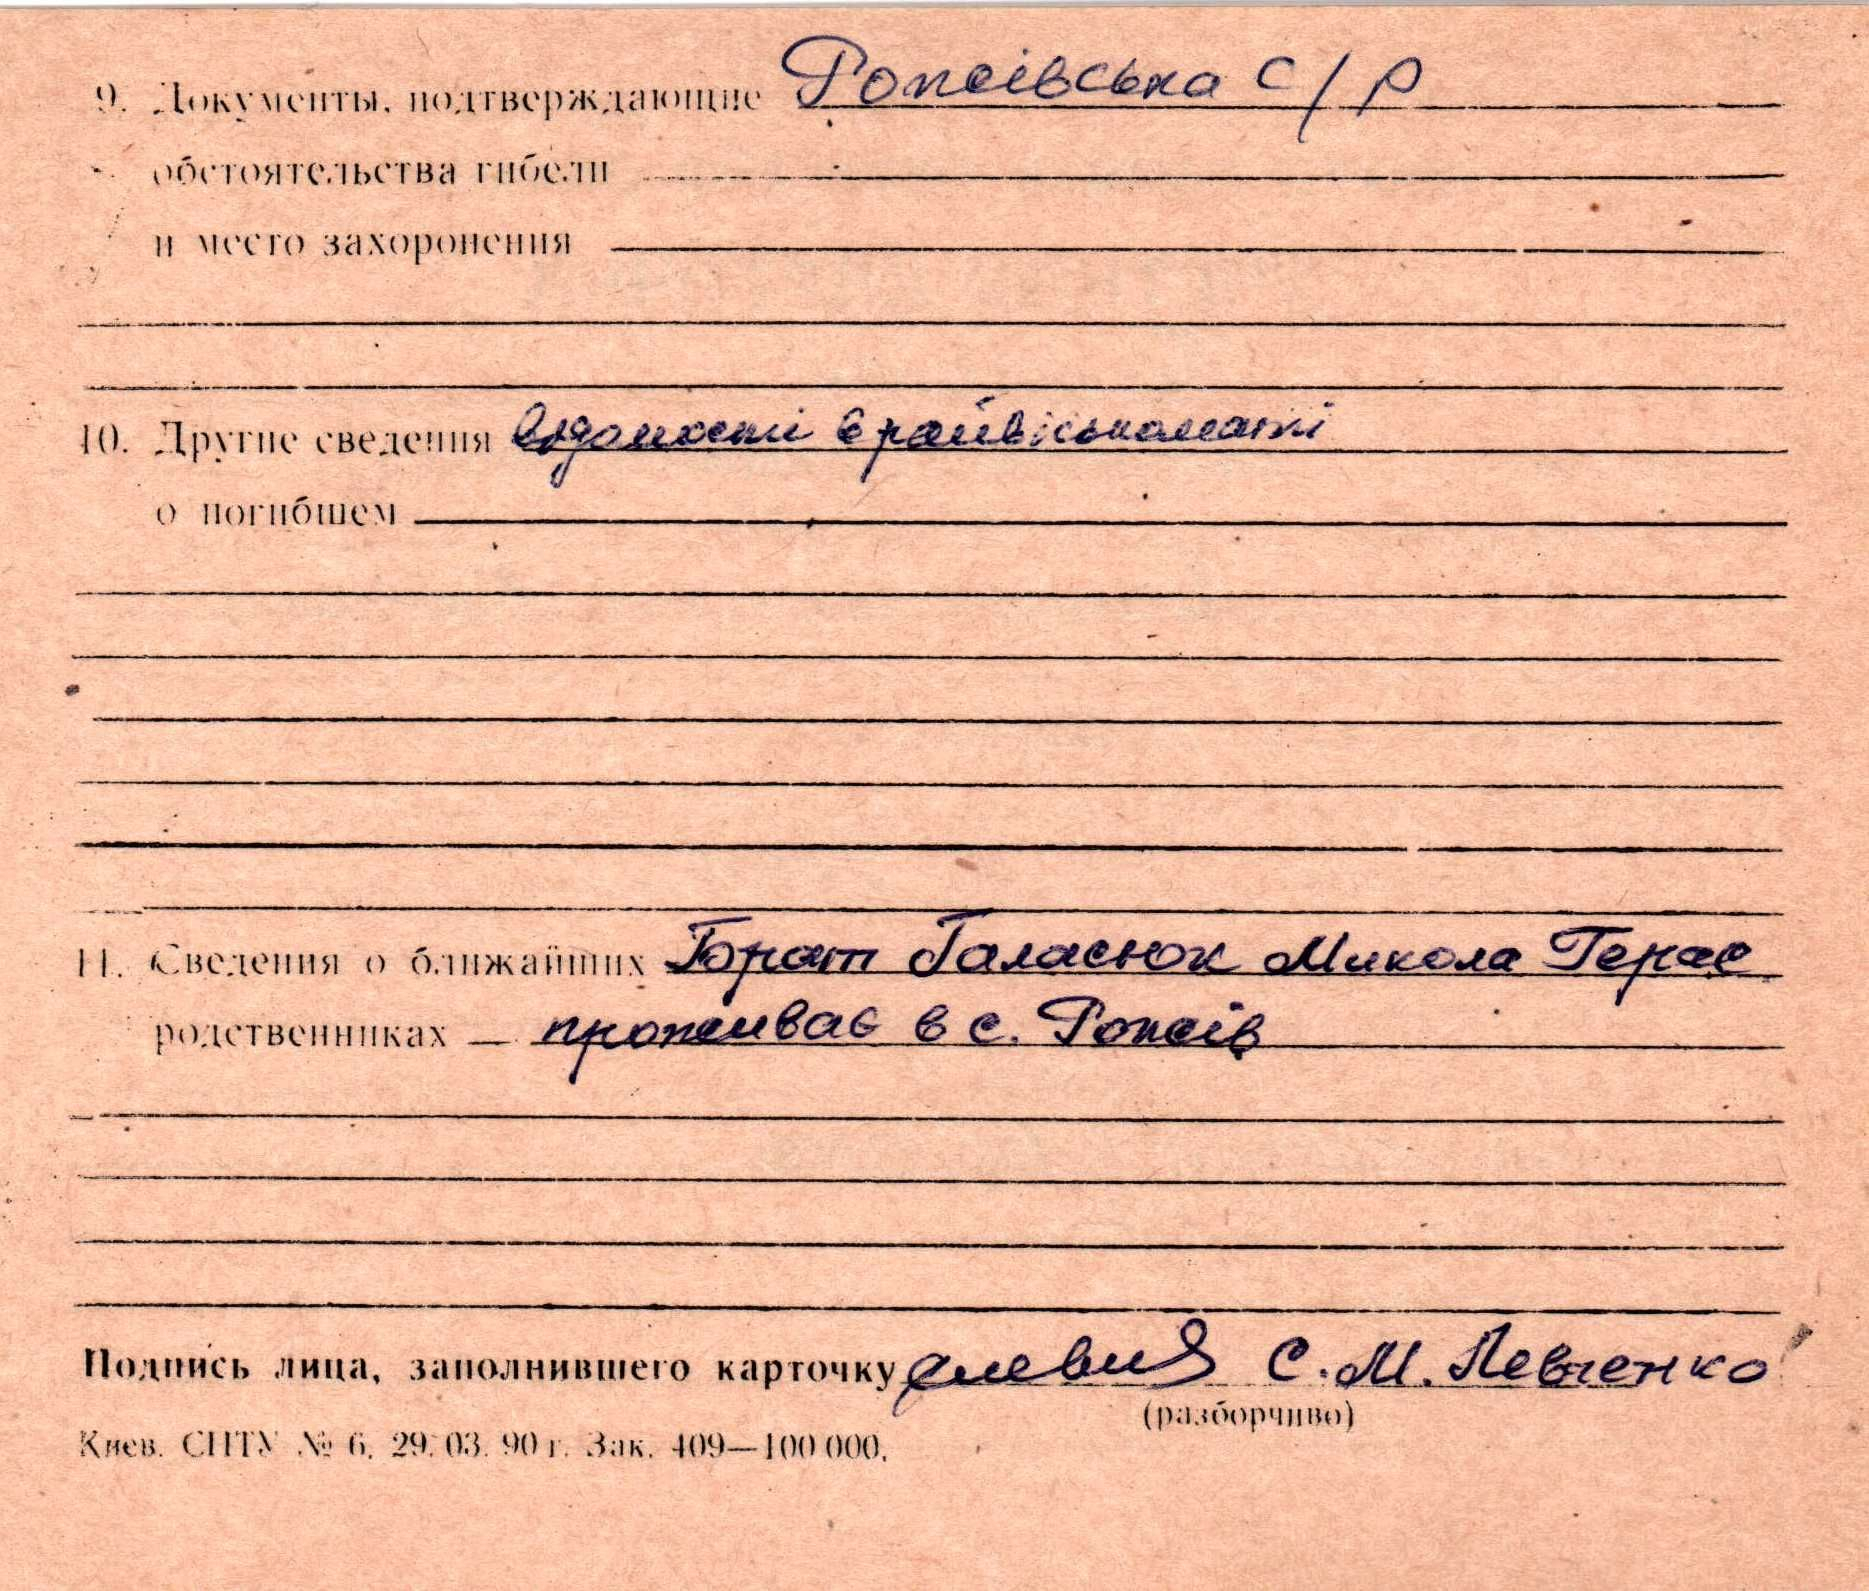 9. Документы, подтверждающие Рожівська с/р
обстоятельства гибели
и место захоронения
10. Другие сведения відомості в райвійськоматі
о погибшем
11. Сведения о ближайших Брат Галасюк Микола Герас
родственниках — проживає в с. Рожів
Подпись лица, заполнившего карточку С. М. Левченко
(разборчиво)
Киев. СПТУ № 6. 29. 03. 90 г. Зак. 409—100 000.